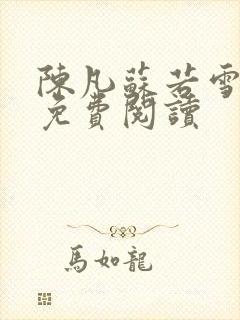 陳凡蘇若雪
免費閱讀
馬如龍